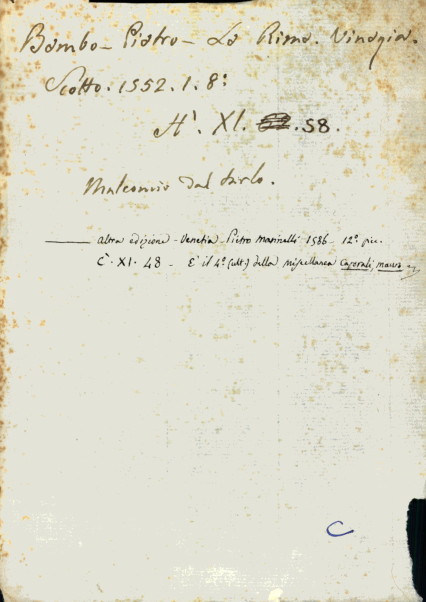 Bembo - Pietro - Le Rime. Vinegia.
Scotto. 1552. 1. 8º
Hˡ. XI. 58.
Malconcio dal tarlo.
altra edizione - Venetia - Pietro Marinelli 1586 - 12º pic.
Cˡ. XI. 48 - È il 4º (ult.) della miscellanea Caporali,
C